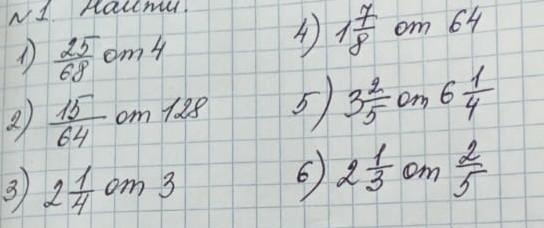 №1. Найти.
1) 25/68 от 4
2) 15/64 от 128
3) 2 1/4 от 3
4) 1 7/8 от 64
5) 3 2/5 от 6 1/4
6) 2 1/3 от 2/5